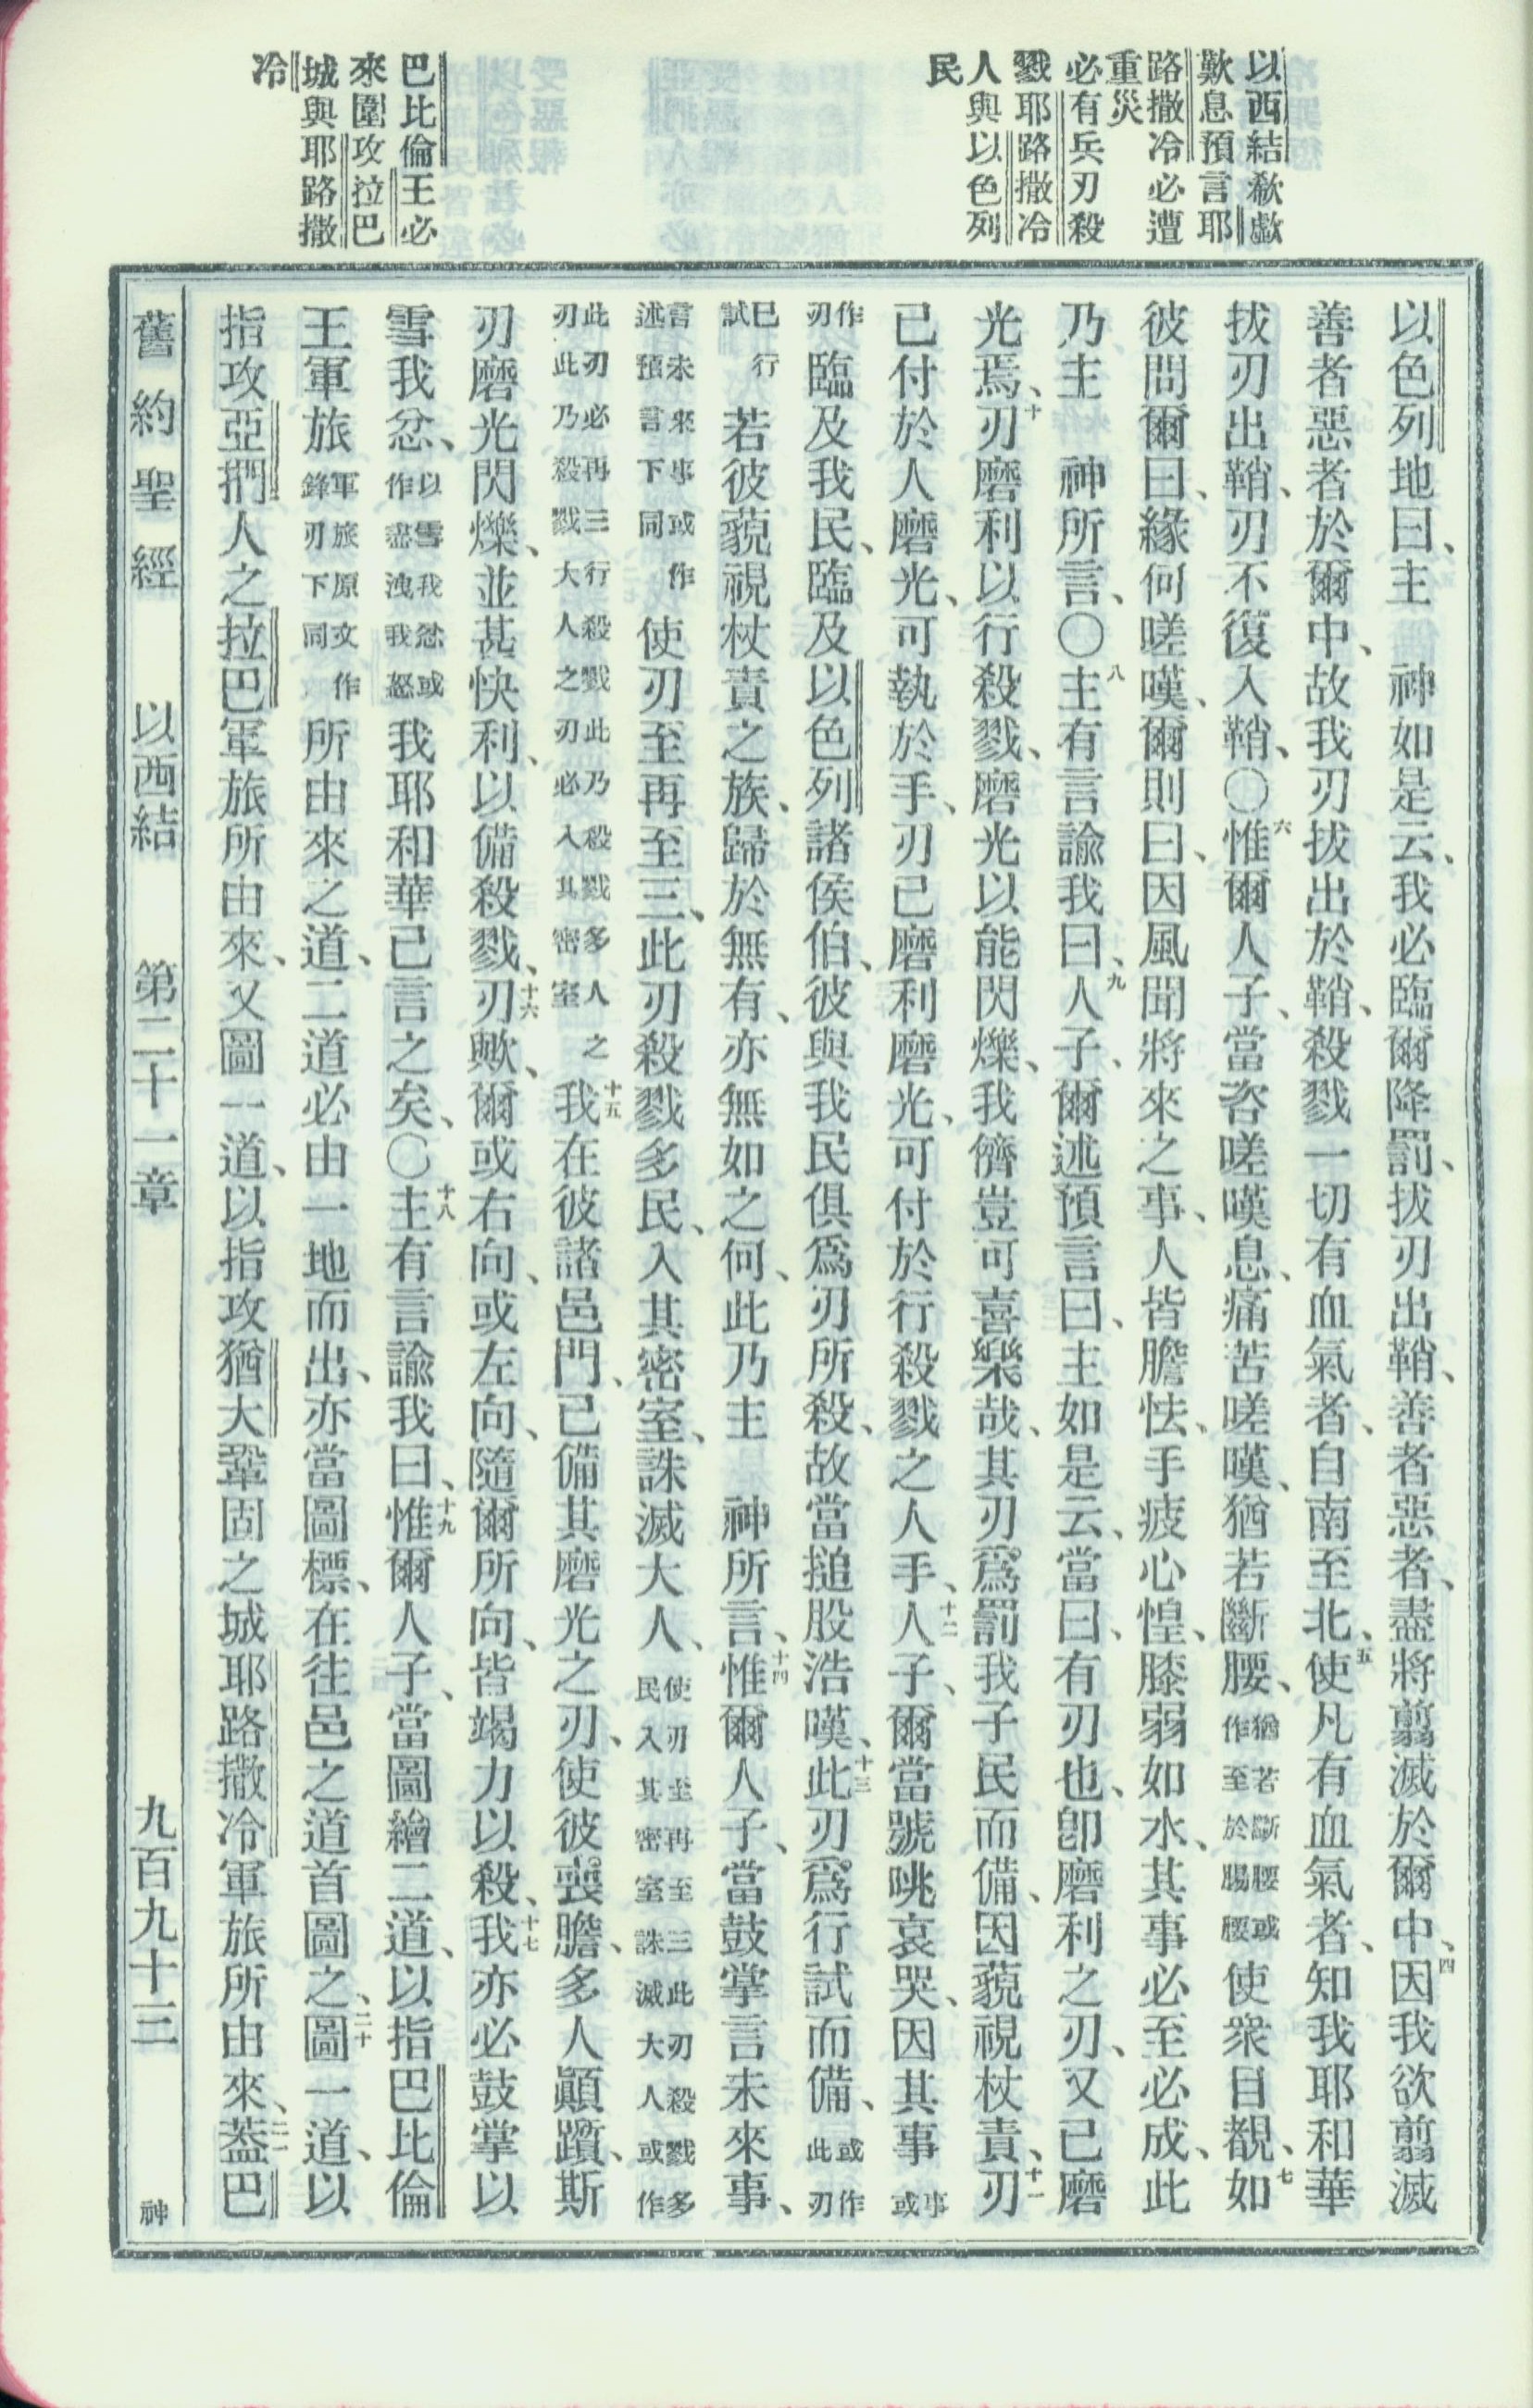 以西結欷歔
歎息預言耶
路撒冷必遭
重災
必有兵刃殺
戮耶路撒冷
人與以色列
民
巴比倫王必
來圍攻拉巴
城與耶路撒
冷
以色列地曰、主　神如是云、我必臨爾降罰、拔刃出鞘、善者惡者、盡將翦滅於爾中、四因我欲翦滅
善者惡者於爾中、故我刃拔出於鞘、殺戮一切有血氣者、自南至北、五使凡有血氣者、知我耶和華
拔刃出鞘、刃不復入鞘、〇六惟爾人子、當咨嗟嘆息、痛苦嗟嘆、猶若斷腰、猶若斷腰或作至於腸腰使衆目覩、七如
彼問爾曰、緣何嗟嘆、爾則曰、因風聞將來之事、人皆膽怯、手疲心惶、膝弱如水、其事必至必成、此
乃主　神所言、〇八主有言諭我曰、九人子、爾述預言曰、主如是云、當曰、有刃也、卽磨利之刃、又已磨
光焉、十刃磨利以行殺戮、磨光以能閃爍、我儕豈可喜樂哉、其刃爲罰我子民而備、因藐視杖責、十一刃
已付於人磨光、可執於手、刃已磨利磨光、可付於行殺戮之人手、十二人子、爾當號咷哀哭、因其事事或
作刃臨及我民、臨及以色列諸侯伯、彼與我民俱爲刃所殺、故當搥股浩嘆、十三此刃爲行試而備、或作此刃
已行試若彼藐視杖責之族、歸於無有、亦無如之何、此乃主　神所言、十四惟爾人子、當鼓掌言未來事、
言未來事或作述預言下同使刃至再至三、此刃殺戮多民、入其密室、誅滅大人、使刃至再至三此刃殺戮多民入其密室誅滅大人或作
此刃必再三行殺戮此乃殺戮多人之刃此乃殺戮大人之刃必入其密室十五我在彼諸邑門、已備其磨光之刃、使彼喪膽、多人顚躓、斯
刃磨光閃爍、並甚快利、以備殺戮、十六刃歟、爾或右向、或左向、隨爾所向、皆竭力以殺、十七我亦必鼓掌以
雪我忿、以雪我忿或作盡洩我怒我耶和華已言之矣、〇十八主有言諭我曰、十九惟爾人子、當圖繪二道、以指巴比倫
王軍旅軍旅原文作鋒刃下同所由來之道、二道必由一地而出、亦當圖標、在往邑之道首圖之、二十圖一道、以
指攻亞捫人之拉巴軍旅所由來、又圖一道、以指攻猶大鞏固之城耶路撒冷軍旅所由來、二一蓋巴
舊約聖經　以西結　第二十一章　九百九十三　神